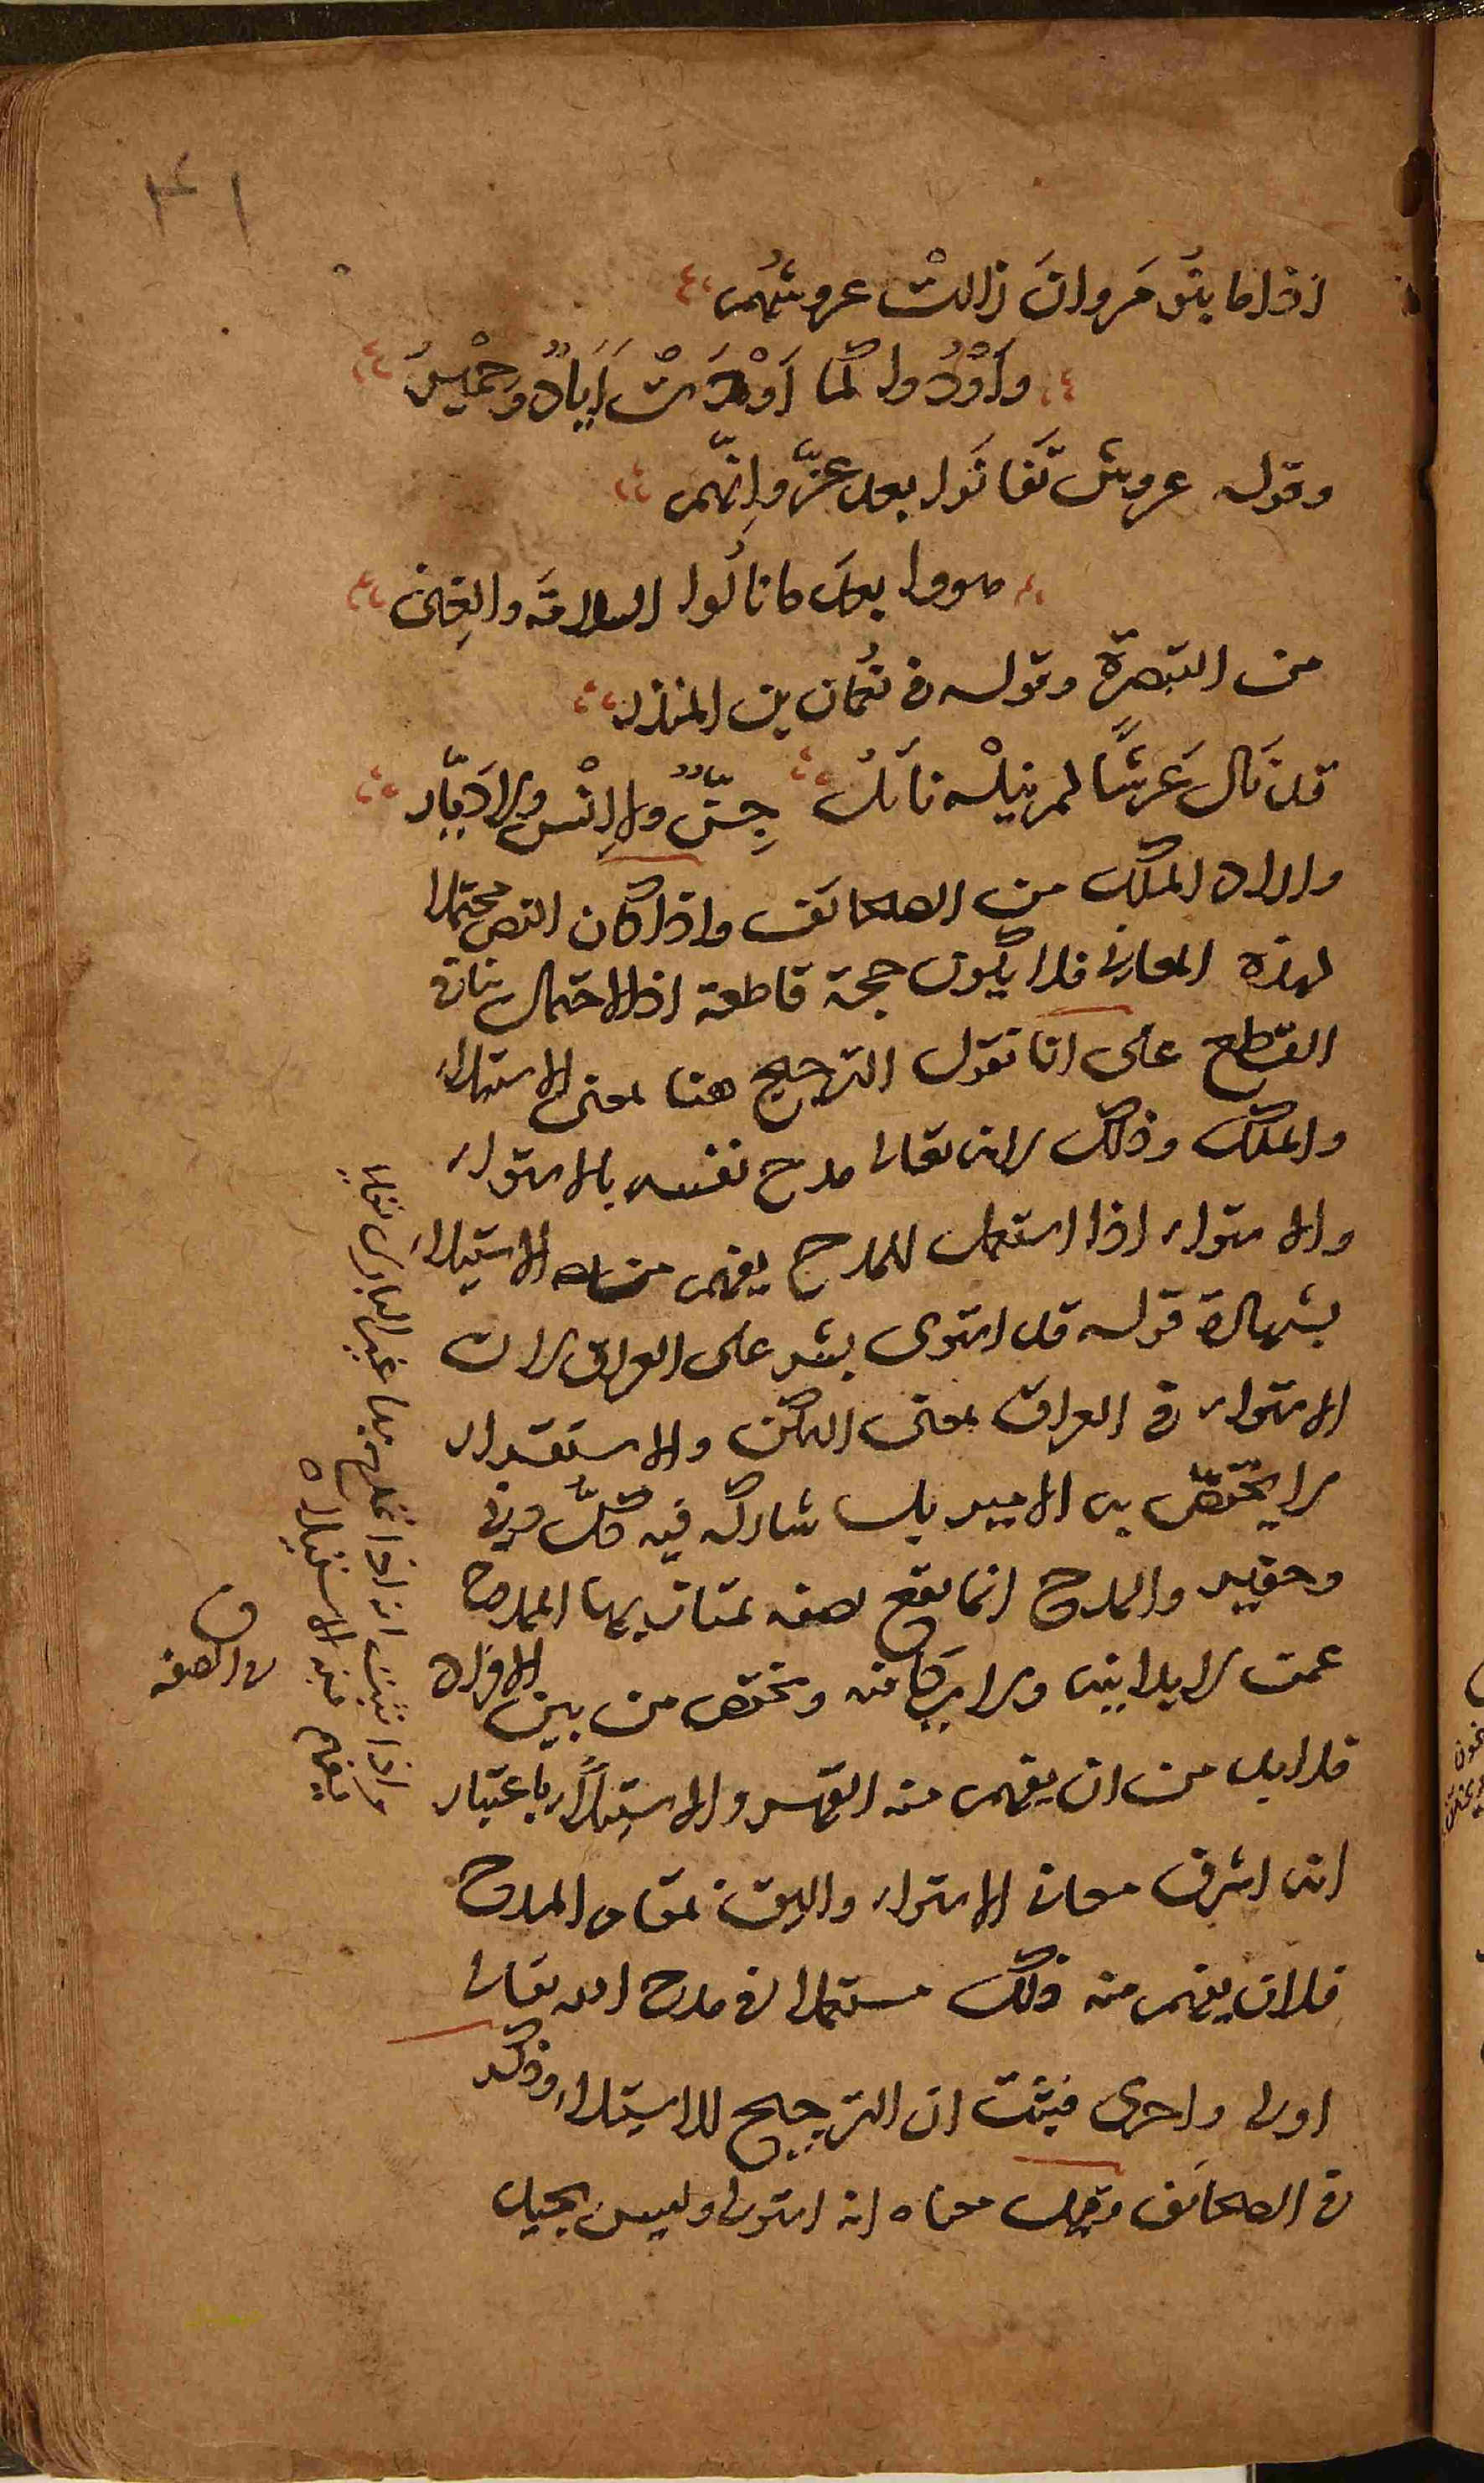 ٣٤١
اذا ما بنُو مَروانَ زالتْ عروشُهم
وَاَوْدُوا كما اَوْدَتْ اَيَادٌ وَحِمْيَرُ
وقوله عروش تَفانَوا بعد عزٍّ وانهم
هووا بعد ما نالُوا السلامَة والغِنى
من التبصرة وقوله في نُعمان بن المنذر
قد نَال عَرشًا لم ينلْه نائلٌ جِنٌّ ولا اِنْسٌ ولا ديّار
واراد الملك من الصحائف واذا كان النص محتملا
لهذه المعاني فلا يكون حجة قاطعة اذ الاحتمال ينافي
القطع على انا نقول الترجيح هنا لمعنى الاستيلاء
والملك وذلك لانه تعالى مدح نفسه بالاستواء
والاستواء اذا استعمل للمدح يفهم منه الاستيلاء
بشهادة قوله قد استوى بشر على العراق لان
الاستواء في العراق بمعنى التمكن والاستقرار
لا يختصّ به الامير بل شاركه فيه كلّ دنيّ
وحقير والمدح انما يقع لصفه يمتاز بها الممدوح
عمن لا يدانيه ولا يكافئه ويختص من بين الافراد
فلا بد من ان يفهم منه القهر والاستيلاء باعتبار
انه اشرف معاني الاستواء واليق بمقام المدح
فلان يفهم منه ذلك مستعملا في مدح الله تعالى
اولى واحرى فيثبت ان الترجيح للاستيلاء وذكر
في الصحائف وقيل معناه انه استولى وليس بجيد
واذا ثبت انه اذا تمدح بها غير الباري تعالى
يفهم منه الاستيلاء